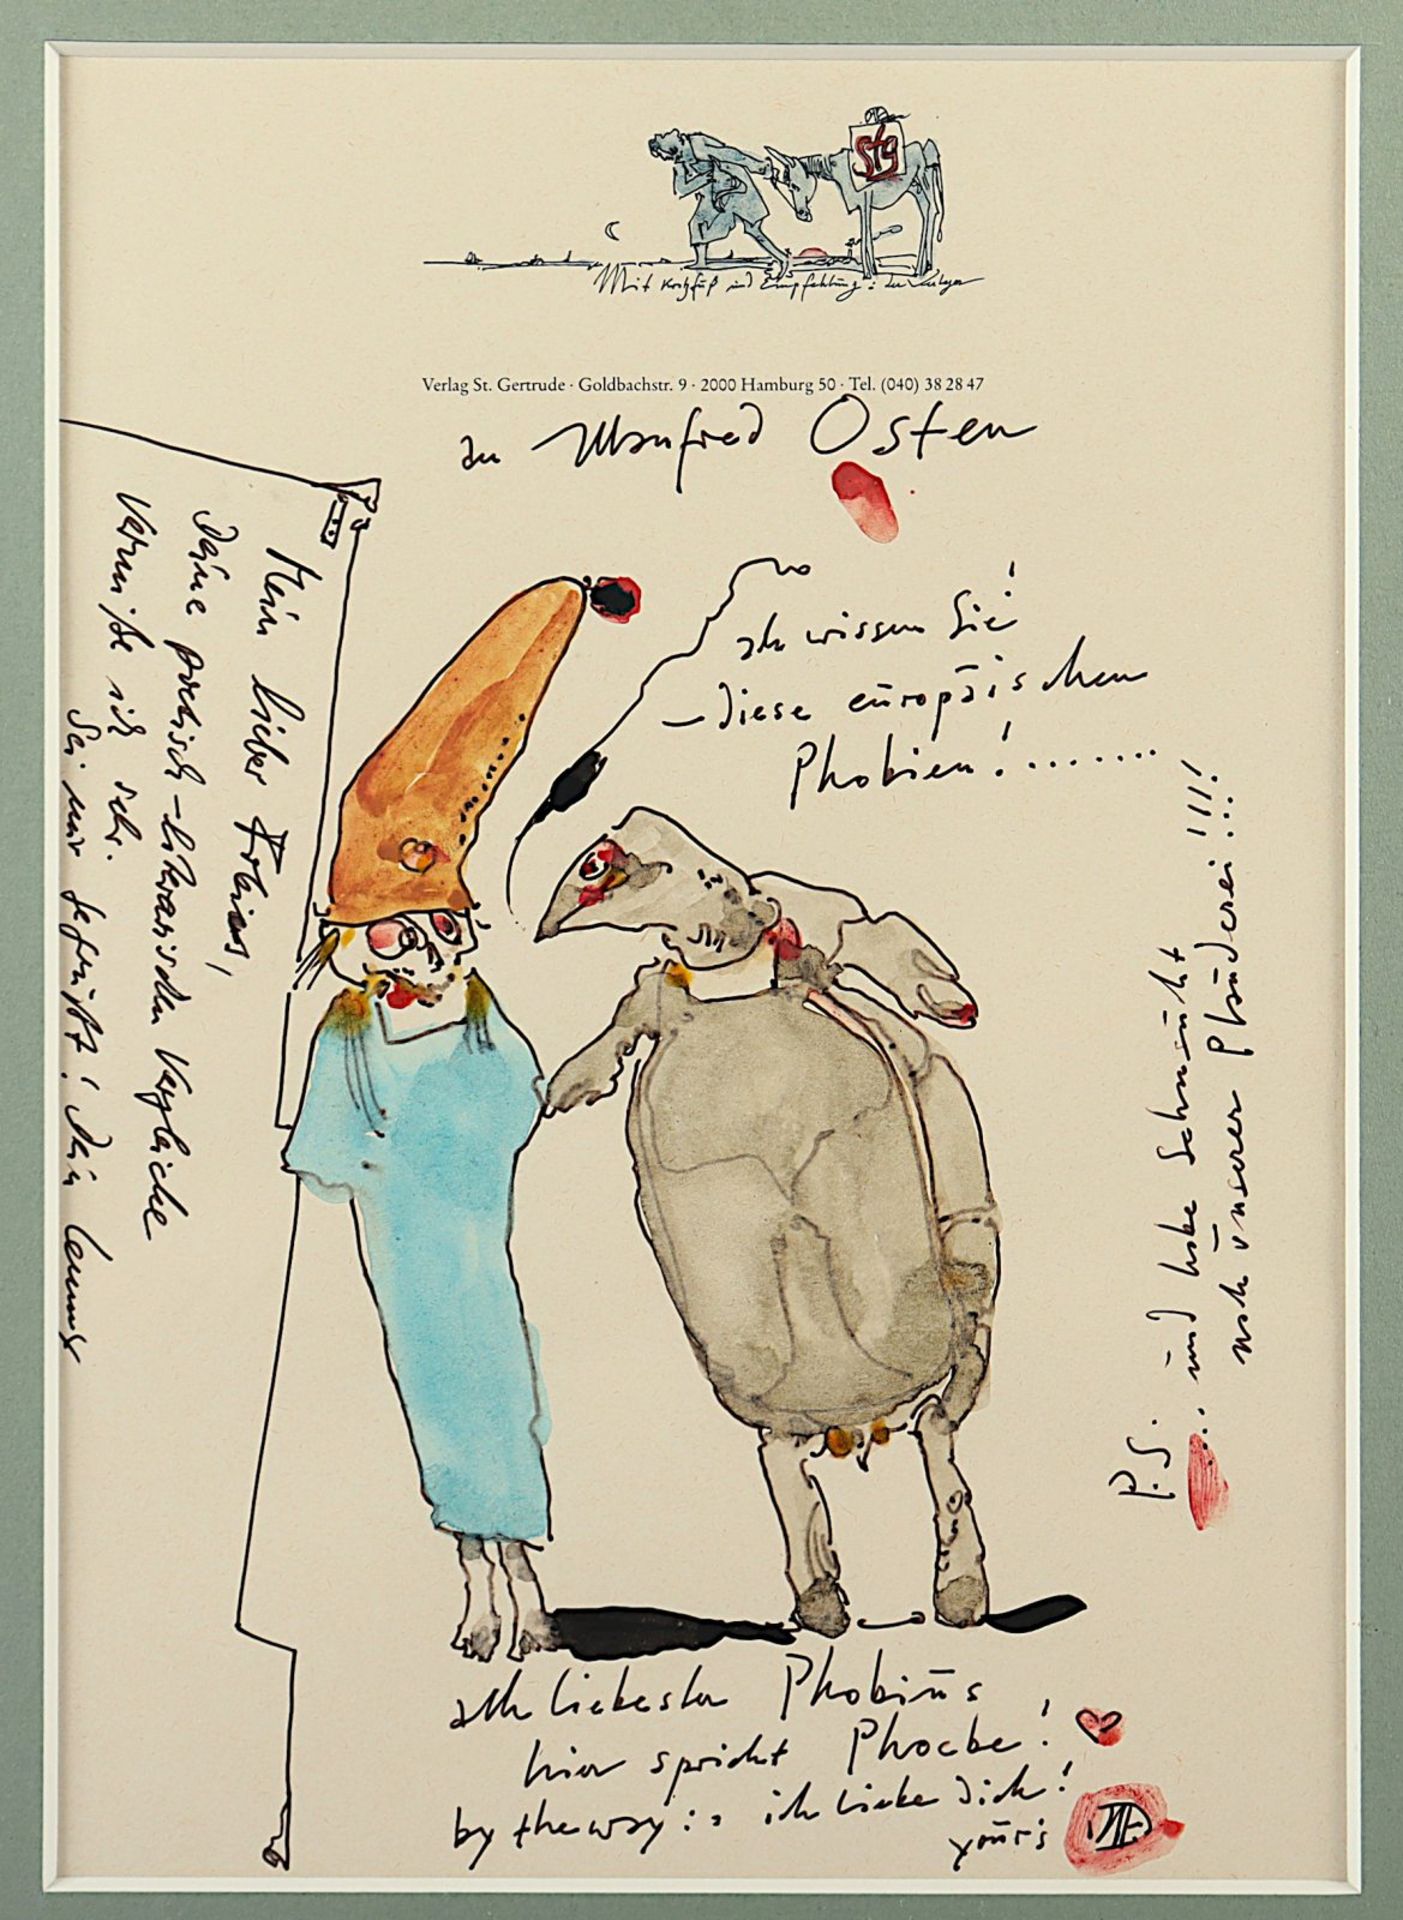 stg
Mit Kratzfuß und Empfehlung: der Verleger
Verlag St. Gertrude · Goldbachstr. 9 · 2000 Hamburg 50 · Tel. (040) 38 28 47
an Manfred Osten
ach wissen Sie!
– diese europäischen
Phobien! .......
Mein lieber
Deine poetisch-literarischen Vergleiche
vermisse ich sehr.
Sei mir gegrüßt! Dein
P.S. ... und habe Sehnsucht
nach unserer Plauderei!!!!
ach liebster Phobius
hier spricht Phoebe!
by the way: ich liebe Dich!
your's